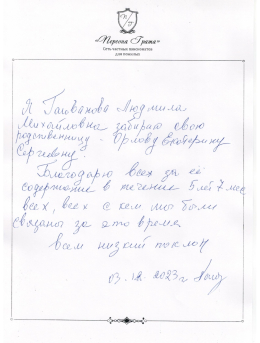 «Персона Грата»
Сеть частных пансионатов
для пожилых
Я Паиванова Людмила
Михайловна забираю свою
родственницу - Орлову Екатерину
Сергеевну.
Благодарю всех за её
содержание в течении 5 лет 7 мес
всех, всех с кем мы были
связаны за это время
всем низкий поклон
03.12.2023г